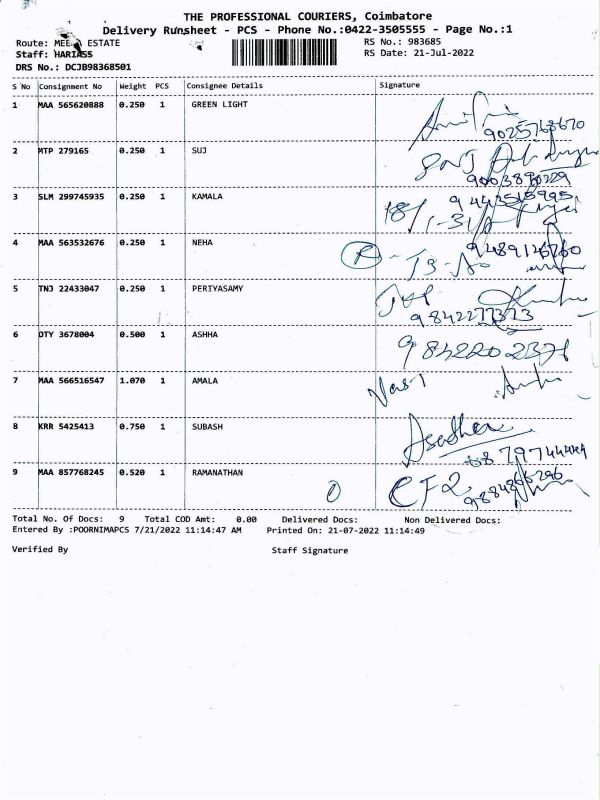 THE PROFESSIONAL COURIERS, Coimbatore
Delivery Runsheet - PCS - Phone No.:0422-3505555 - Page No.:1
Route: ESTATE
RS No.: 983685
Staff: HARIASS
RS Date: 21-Jul-2022
DRS No.: DCJB98368501
S No Consignment No Weight PCS Consignee Details Signature
1 MAA 565620888 0.250 1 GREEN LIGHT
9025768670
2 MTP 279165 0.250 1 SUJ
3 SLM 299745935 0.250 1 KAMALA
4 MAA 563532676 0.250 1 NEHA
R
5 TNJ 22433047 0.250 1 PERIYASAMY
9842277373
6 OTY 3678004 0.500 1 ASHHA
7 MAA 566516547 1.070 1 AMALA
8 KRR 5425413 0.750 1 SUBASH
9 MAA 857768245 0.520 1 RAMANATHAN
CF2
Total No. Of Docs: 9 Total COD Amt: 0.00 Delivered Docs: Non Delivered Docs:
Entered By :POORNIMAPCS 7/21/2022 11:14:47 AM Printed On: 21-07-2022 11:14:49
Verified By Staff Signature